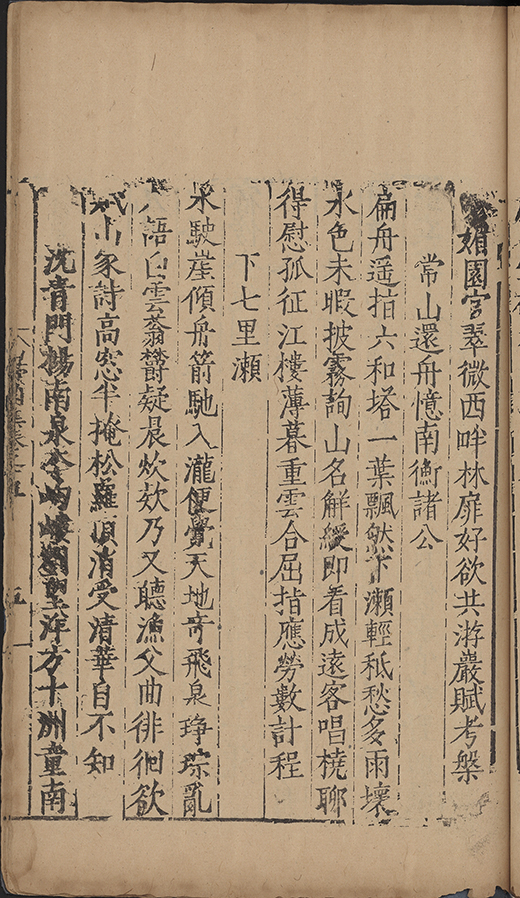 媚園官翠微西畔林扉好欲共游嚴賦考槃
常山還舟憶南衡諸公
扁舟遥指六和塔一葉飄然下瀨輕秪愁多雨壞
水色未暇披霧詢山名解纓即看成遠客唱橈聊
得慰孤征江樓薄暮重雲合屈指應勞數計程
下七里瀨
水駛崖傾舟箭馳入瀧便覺天地奇飛泉琤琮亂
人語白雲蓊欝疑晨炊欸乃又聽漁父曲徘徊欲
山家詩高窓半掩松蘿頂消受清華自不知
沈青門楊南泉李岣嶁劉望洋方十洲童南
五